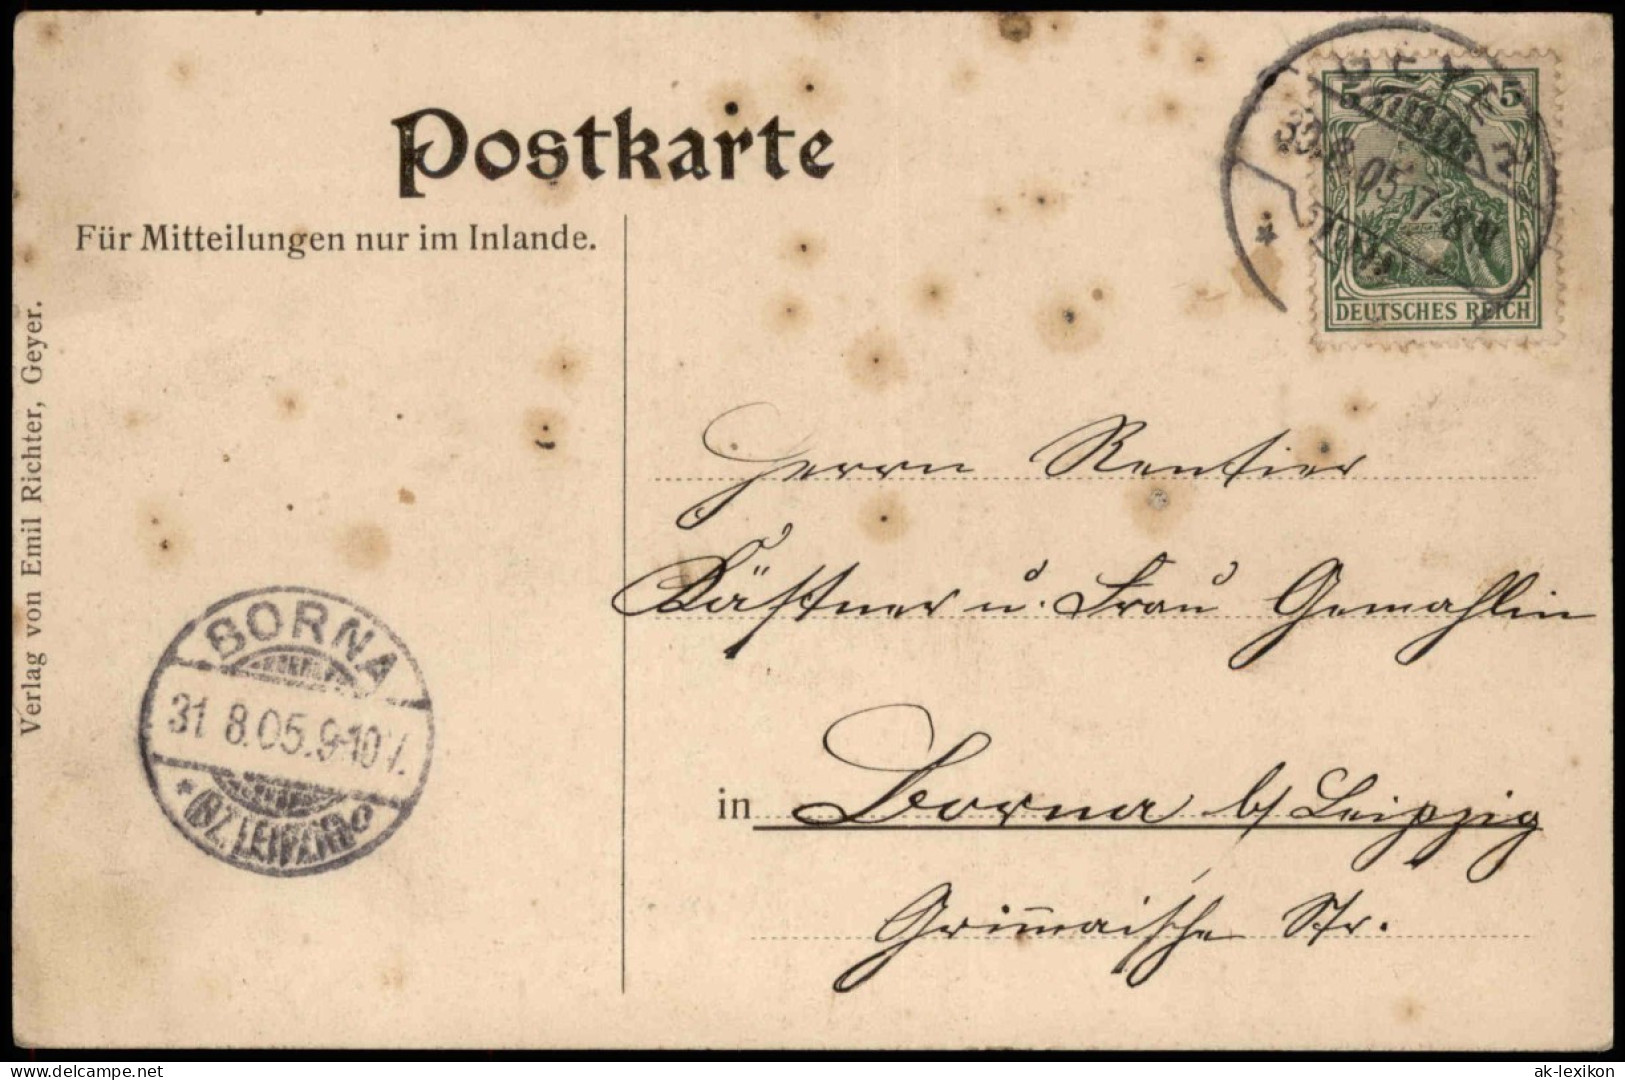 Postkarte
Für Mitteilungen nur im Inlande.
Verlag von Emil Richter, Geyer.
5 5
DEUTSCHES REICH
30.8.05.7-8N
*
Herrn Rentier
Kästner u. Frau Gemahlin
in Borna b/ Leipzig
Grimmaische Str.
BORNA
31 8.05.9-10V.
* (BZ. LEIPZIG)
delcampe.net
ak-lexikon